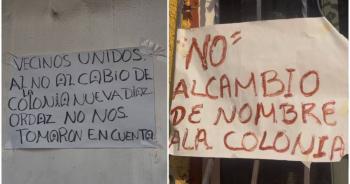 VECINOS UNIDOS
AL NO AL CABIO DE
LA
COLONIA NUEVA DIAZ
ORDAZ NO NOS
TOMARON EN CUENTA
"NO"
ALCAMBIO
DE NOMBRE
ALA COLONIA